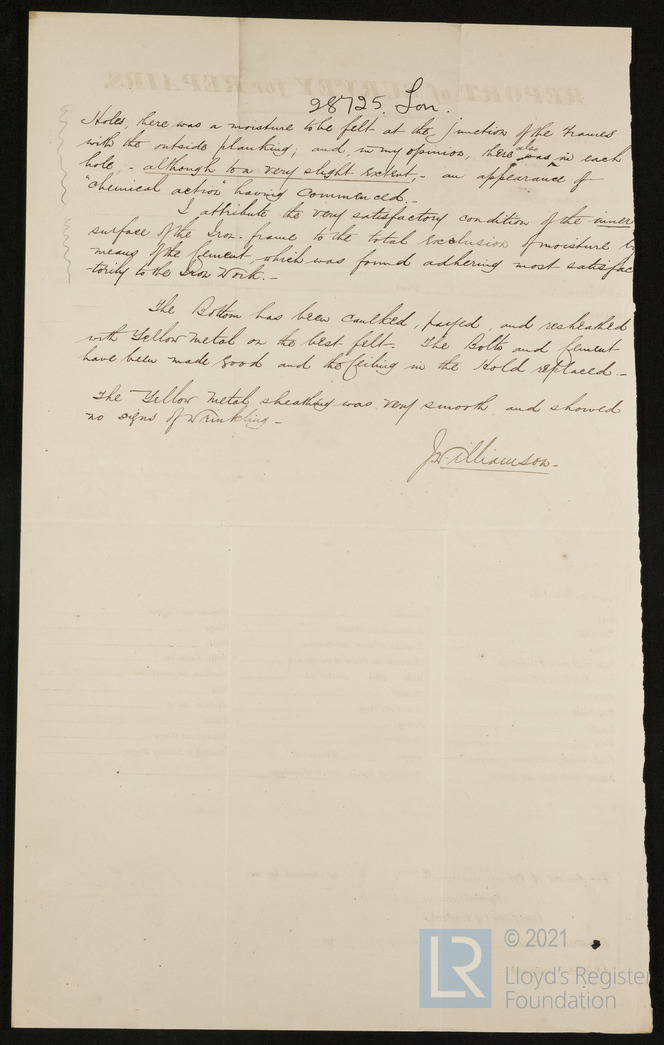 28725 Lon.
Holes, there was a moisture to be felt at the junction of the Frames
with the outside planking; and, in my opinion, there also was in each
hole, - although to a very slight extent, - an appearance of
"Chemical action" having commenced. -
I attribute the very satisfactory condition of the inner
surface of the Iron-frame to the total exclusion of moisture by
means of the Cement, which was found adhering most satisfac
-torily to the Iron Work. -
The Bottom has been caulked, payed, and resheathed
with Yellow Metal on the best felt. The Bolts and Cement
have been made good and the Ceiling in the Hold replaced. -
The Yellow Metal sheathing was very smooth and showed
no signs of wrinkling -
J Williamson -
REPORT of SURVEY for REPAIRS.
LR
© 2021
Lloyd's Register
Foundation